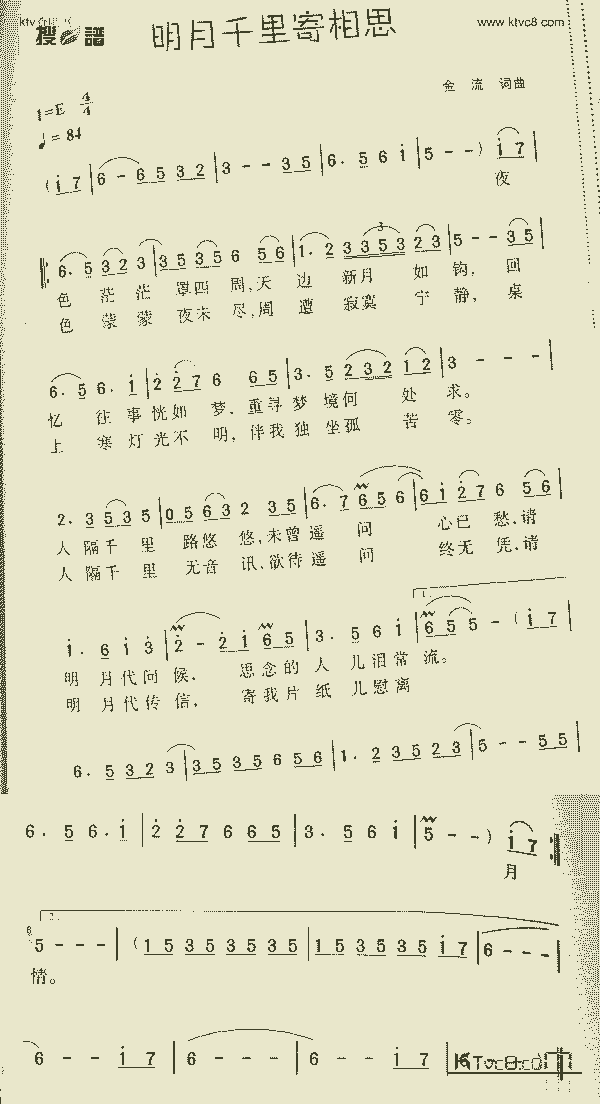 搜谱
www.ktvc8.com
明月千里寄相思
金 流 词曲
1=E 4/4
♩= 84
(i 7 | 6 - 6 5 3 2 | 3 - - 3 5 | 6. 5 6 i | 5 - - ) i 7 |
夜
6. 5 3 2 3 | 3 5 3 5 6 5 6 | 1. 2 3 3 5 3 2 3 | 5 - - 3 5 |
色 茫 茫 罩四 周,天 边 新月 如 钩, 回
色 蒙 蒙 夜未 尽,周 遭 寂寞 宁 静, 桌
6. 5 6. i | 2 2 7 6 6 5 | 3. 5 2 3 2 1 2 | 3 - - - |
忆 往 事 恍如 梦, 重寻 梦 境何 处 求。
上 寒 灯 光不 明, 伴我 独 坐孤 苦 零。
2. 3 5 3 5 | 0 5 6 3 2 3 5 | 6. 7 6 5 6 | 6 i 2 7 6 5 6 |
人 隔千 里 路悠 悠,未曾 遥 问 心已 愁,请
人 隔千 里 无音 讯,欲待 遥 问 终无 凭,请
1.
i. 6 i 3 | 2 - 2 i 6 5 | 3. 5 6 i | 6 5 5 - ( i 7 |
明 月代 问 候, 思念 的 人 儿泪 常 流。
明 月代 传 信, 寄我 片 纸 儿慰 离
6. 5 3 2 3 | 3 5 3 5 6 5 6 | 1. 2 3 5 2 3 | 5 - - 5 5 |
6. 5 6. i | 2 2 7 6 6 5 | 3. 5 6 i | 5 - - ) i 7 :|
月
2.
5 - - - | ( 1 5 3 5 3 5 3 5 | 1 5 3 5 3 5 i 7 | 6 - - - |
情。
6 - - i 7 | 6 - - - | 6 - - i 7 |